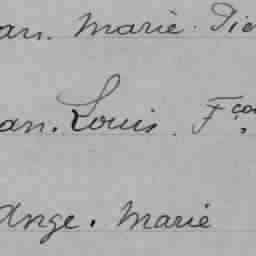 an. Marie. Pie
an. Louis. Fço
Ange. Marie